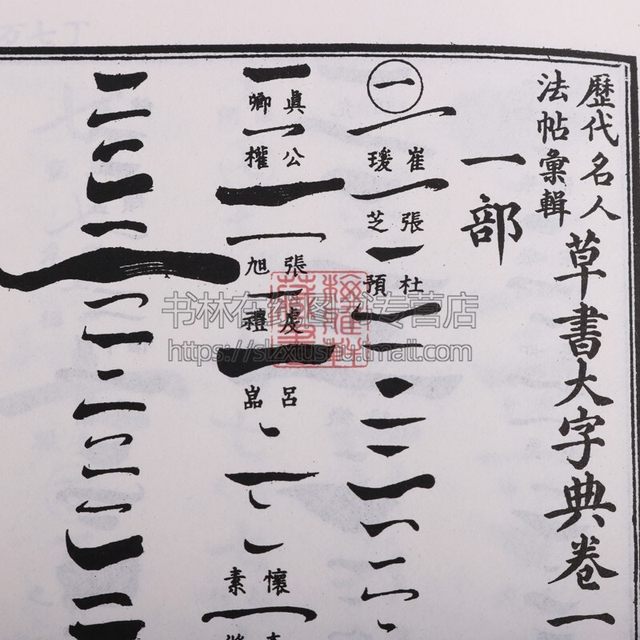 歷代名人
法帖彙輯
草書大字典卷一
一部
一
崔瑗
張芝
杜預
眞卿
公權
張旭
虔禮
呂嵒
懷素
书林在线图书专营店
https://slzxtushu.tmall.com